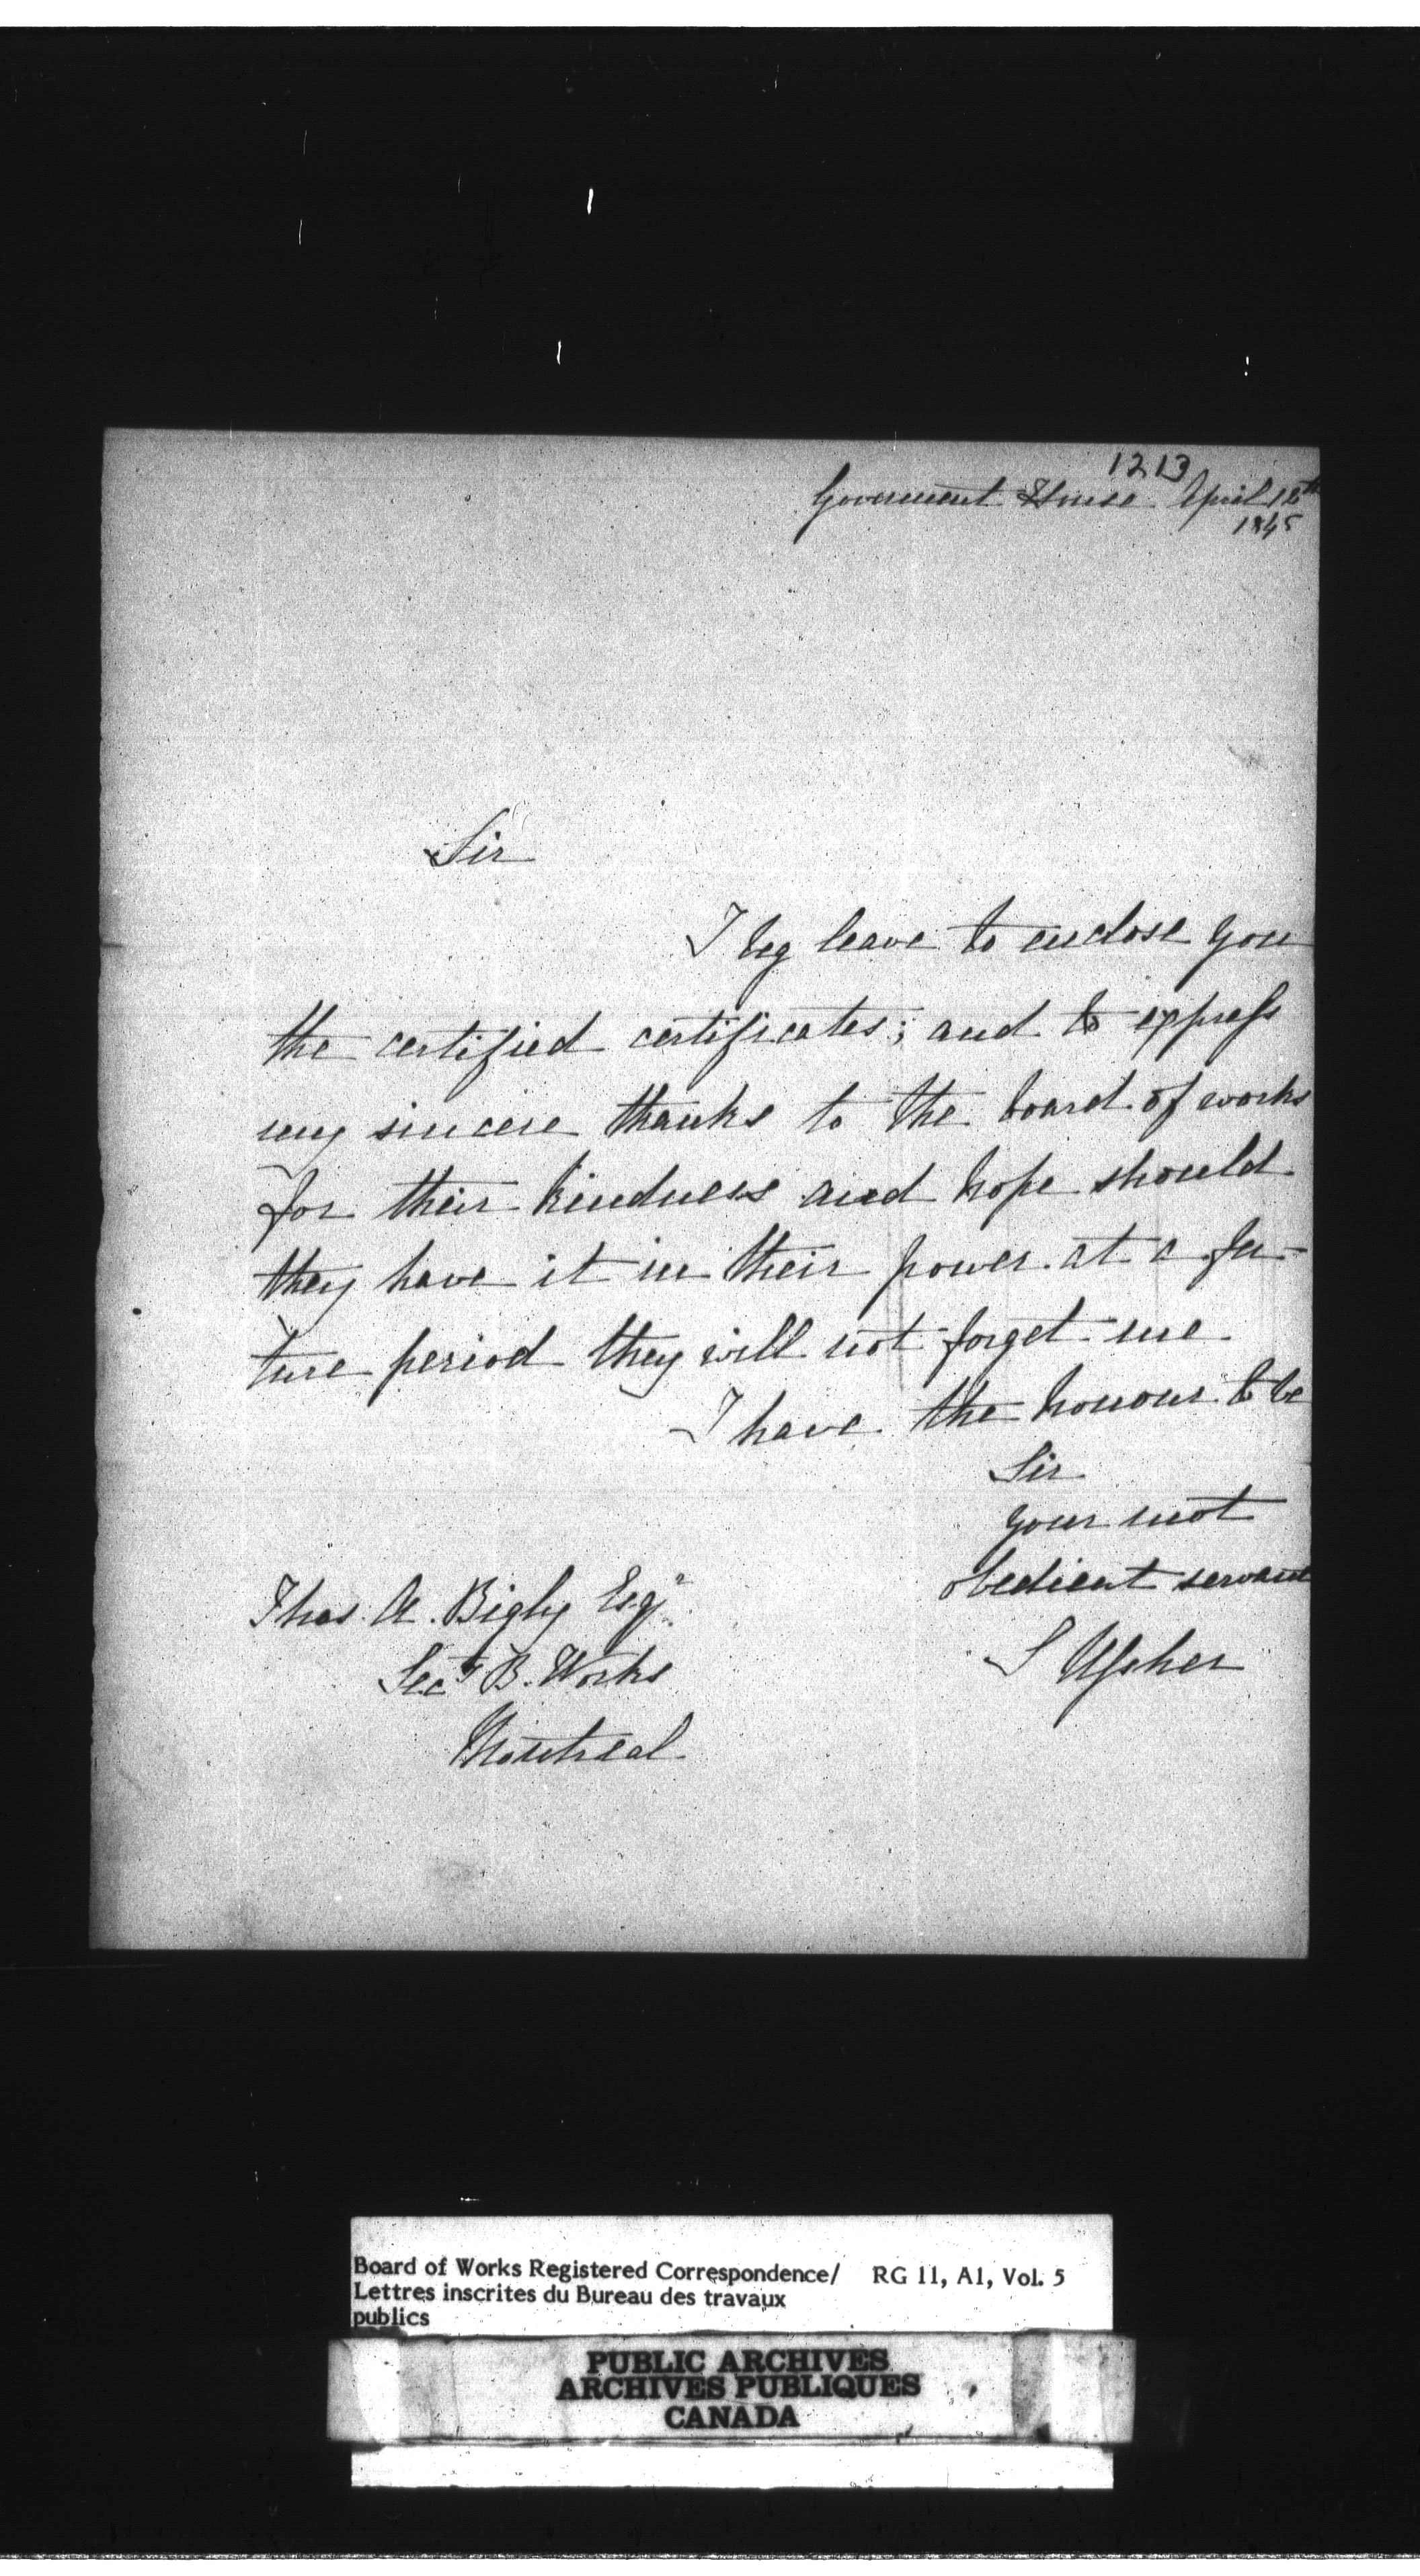 1213
Goverment House April 12th
1845
Sir
I beg leave to enclose you
the certified certificates; and to express
my sincere thanks to the board of works
for their kindness and hope should
they have it in their power at a fu-
ture period they will not forget me
I have the honour to be
Sir
your most
obedient servant
Thos A. Bigly Esqr
Secy B. Works
Montreal
S Usher
Board of Works Registered Correspondence/ RG 11, A1, Vol. 5
Lettres inscrites du Bureau des travaux
publics
PUBLIC ARCHIVES
ARCHIVES PUBLIQUES
CANADA